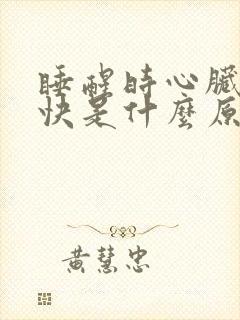 睡醒时心臟
快是什麼原
黃慧忠